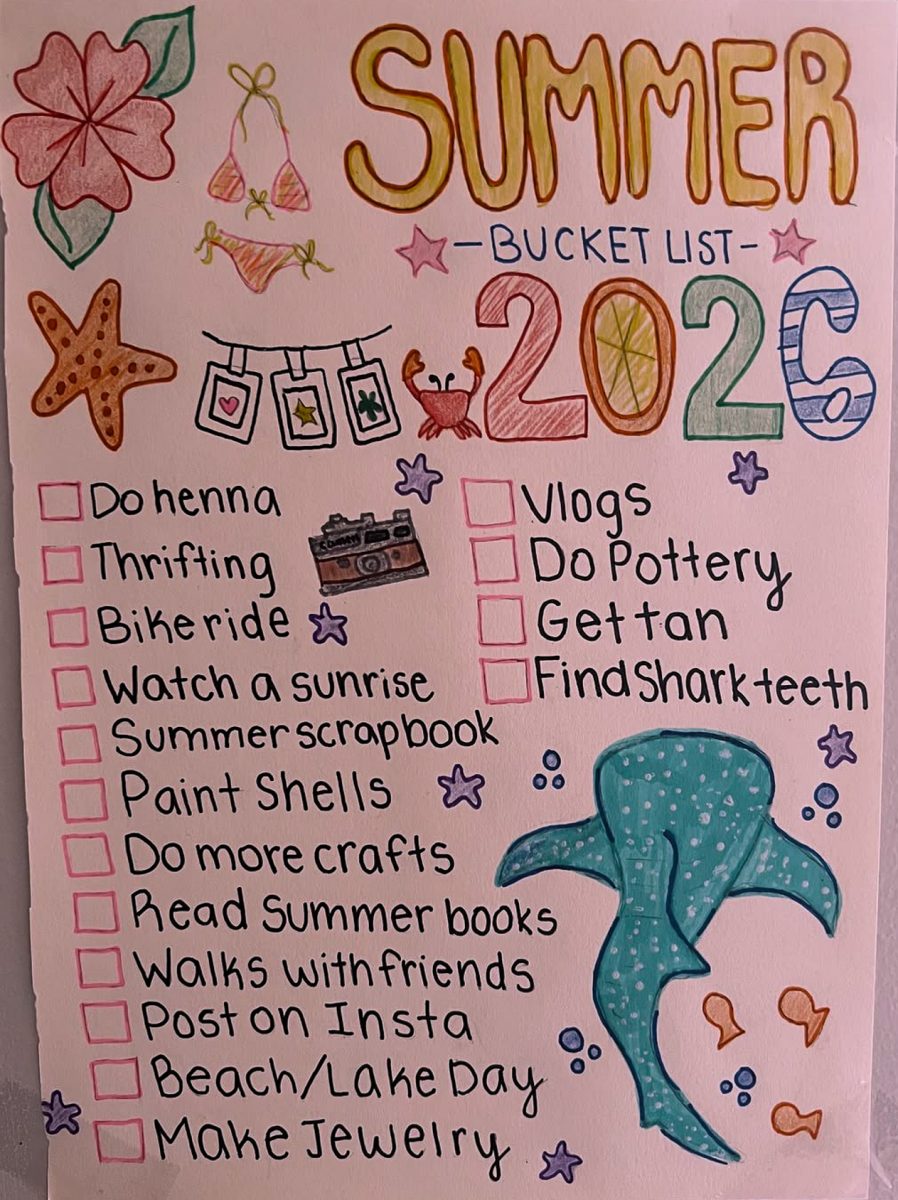 SUMMER
-BUCKET LIST-
2026
Do henna
Thrifting
Bike ride
Watch a sunrise
Summer scrapbook
Paint Shells
Do more crafts
Read Summer books
Walks with friends
Post on Insta
Beach/Lake Day
Make Jewelry
Vlogs
Do Pottery
Get tan
Find Shark teeth